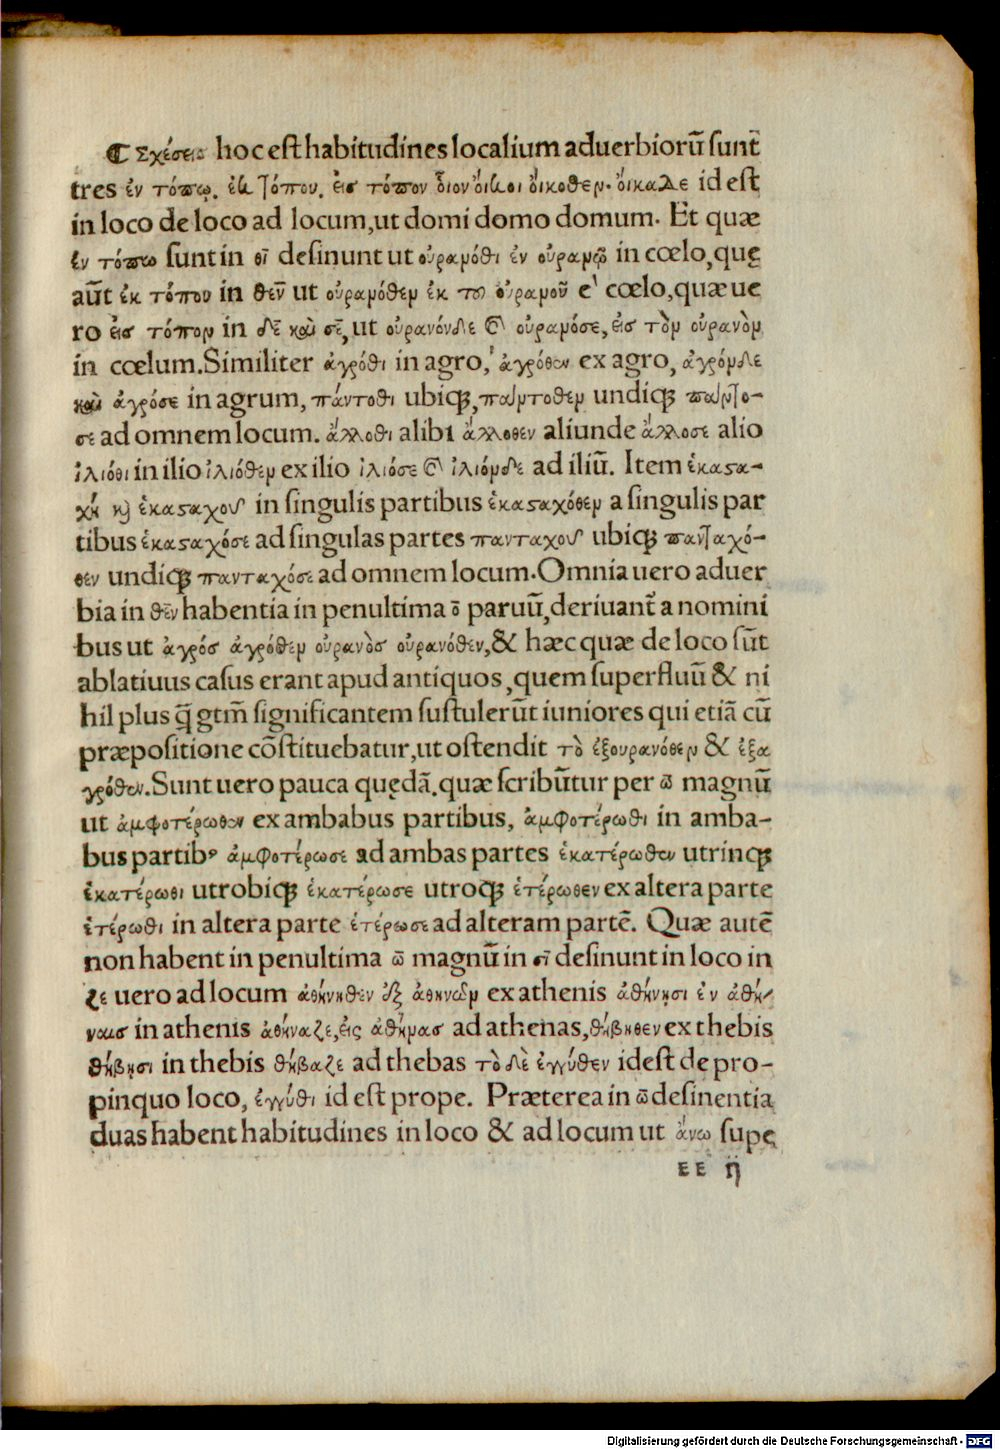 ☾ Σχέσεισ hoc est habitudines localium aduerbiorū sunt̄
tres ἐν τόπῳ. ἐκ τόπου. εἰσ τόπον οἷον οἴκοι οἴκοθεν. οἴκαδε id est
in loco de loco ad locum, ut domi domo domum. Et quæ
ἐν τόπω sunt in θῑ desinunt ut οὐρανόθι ἐν οὐρανῶ in cœlo, quę
aūt ἐκ τόπου in θεν̄ ut οὐρανόθεν ἐκ του οὐρανοῦ e' cœlo, quæ ue
ro εἰσ τόπον in δε̄ καὶ σε̄, ut οὐρανόνδε & οὐρανόσε, εἰσ τὸν οὐρανὸν
in cœlum. Similiter ἀγρόθι in agro, ἀγρόθεν ex agro, ἀγρόνδε
καὶ ἀγρόσε in agrum, πάντοθι ubiq;, πάντοθεν undiq; πάντο-
σε ad omnem locum. ἄλλοθι alibi ἄλλοθεν aliunde ἄλλοσε alio
ἰλιόθι in ilio ἰλιόθεν ex ilio ἰλιόσε & ἰλιόνδε ad iliū. Item ἑκαστα-
χῆ κὶ ἑκασταχοῦ in singulis partibus ἑκασταχόθεν a singulis par
tibus ἑκασταχόσε ad singulas partes πανταχοῦ ubiq; πανταχό-
θεν undiq; πανταχόσε ad omnem locum. Omnia uero aduer
bia in θεν̄ habentia in penultima ō paruū, deriuant̄ a nomini
bus ut ἀγρόσ ἀγρόθεν οὐρανὸσ οὐρανόθεν, & hæc quæ de loco sūt
ablatiuus casus erant apud antiquos, quem superfluū & ni
hil plus q̄ gtm̄ significantem sustulerūt iuniores qui etiā cū
præpositione cōstituebatur, ut ostendit τὸ ἐξουρανόθεν & ἐξα
γρόθεν. Sunt uero pauca quędā. quæ scribūtur per ω̄ magnū
ut ἀμφοτέρωθεν ex ambabus partibus, ἀμφοτέρωθι in amba-
bus partibꝰ ἀμφοτέρωσε ad ambas partes ἑκατέρωθεν utrinq;
ἑκατέρωθι utrobiq; ἑκατέρωσε utroq; ἑτέρωθεν ex altera parte
ἑτέρωθι in altera parte ἑτέρωσε ad alteram partē. Quæ autē
non habent in penultima ω̄ magnū in σῑ desinunt in loco in
ζε uero ad locum ἀθήνηθεν ἐξ ἀθηνῶν ex athenis ἀθήνησι ἐν ἀθή-
ναισ in athenis ἀθήναζε, εἰς ἀθήνασ ad athenas, θήβηθεν ex thebis
θήβησι in thebis θήβαζε ad thebas τὸ δὲ ἐγγύθεν idest de pro-
pinquo loco, ἐγγύθι id est prope. Præterea in ω̄ desinentia
duas habent habitudines in loco & ad locum ut ἄνω supę
EE ij
Digitalisierung gefördert durch die Deutsche Forschungsgemeinschaft - DFG